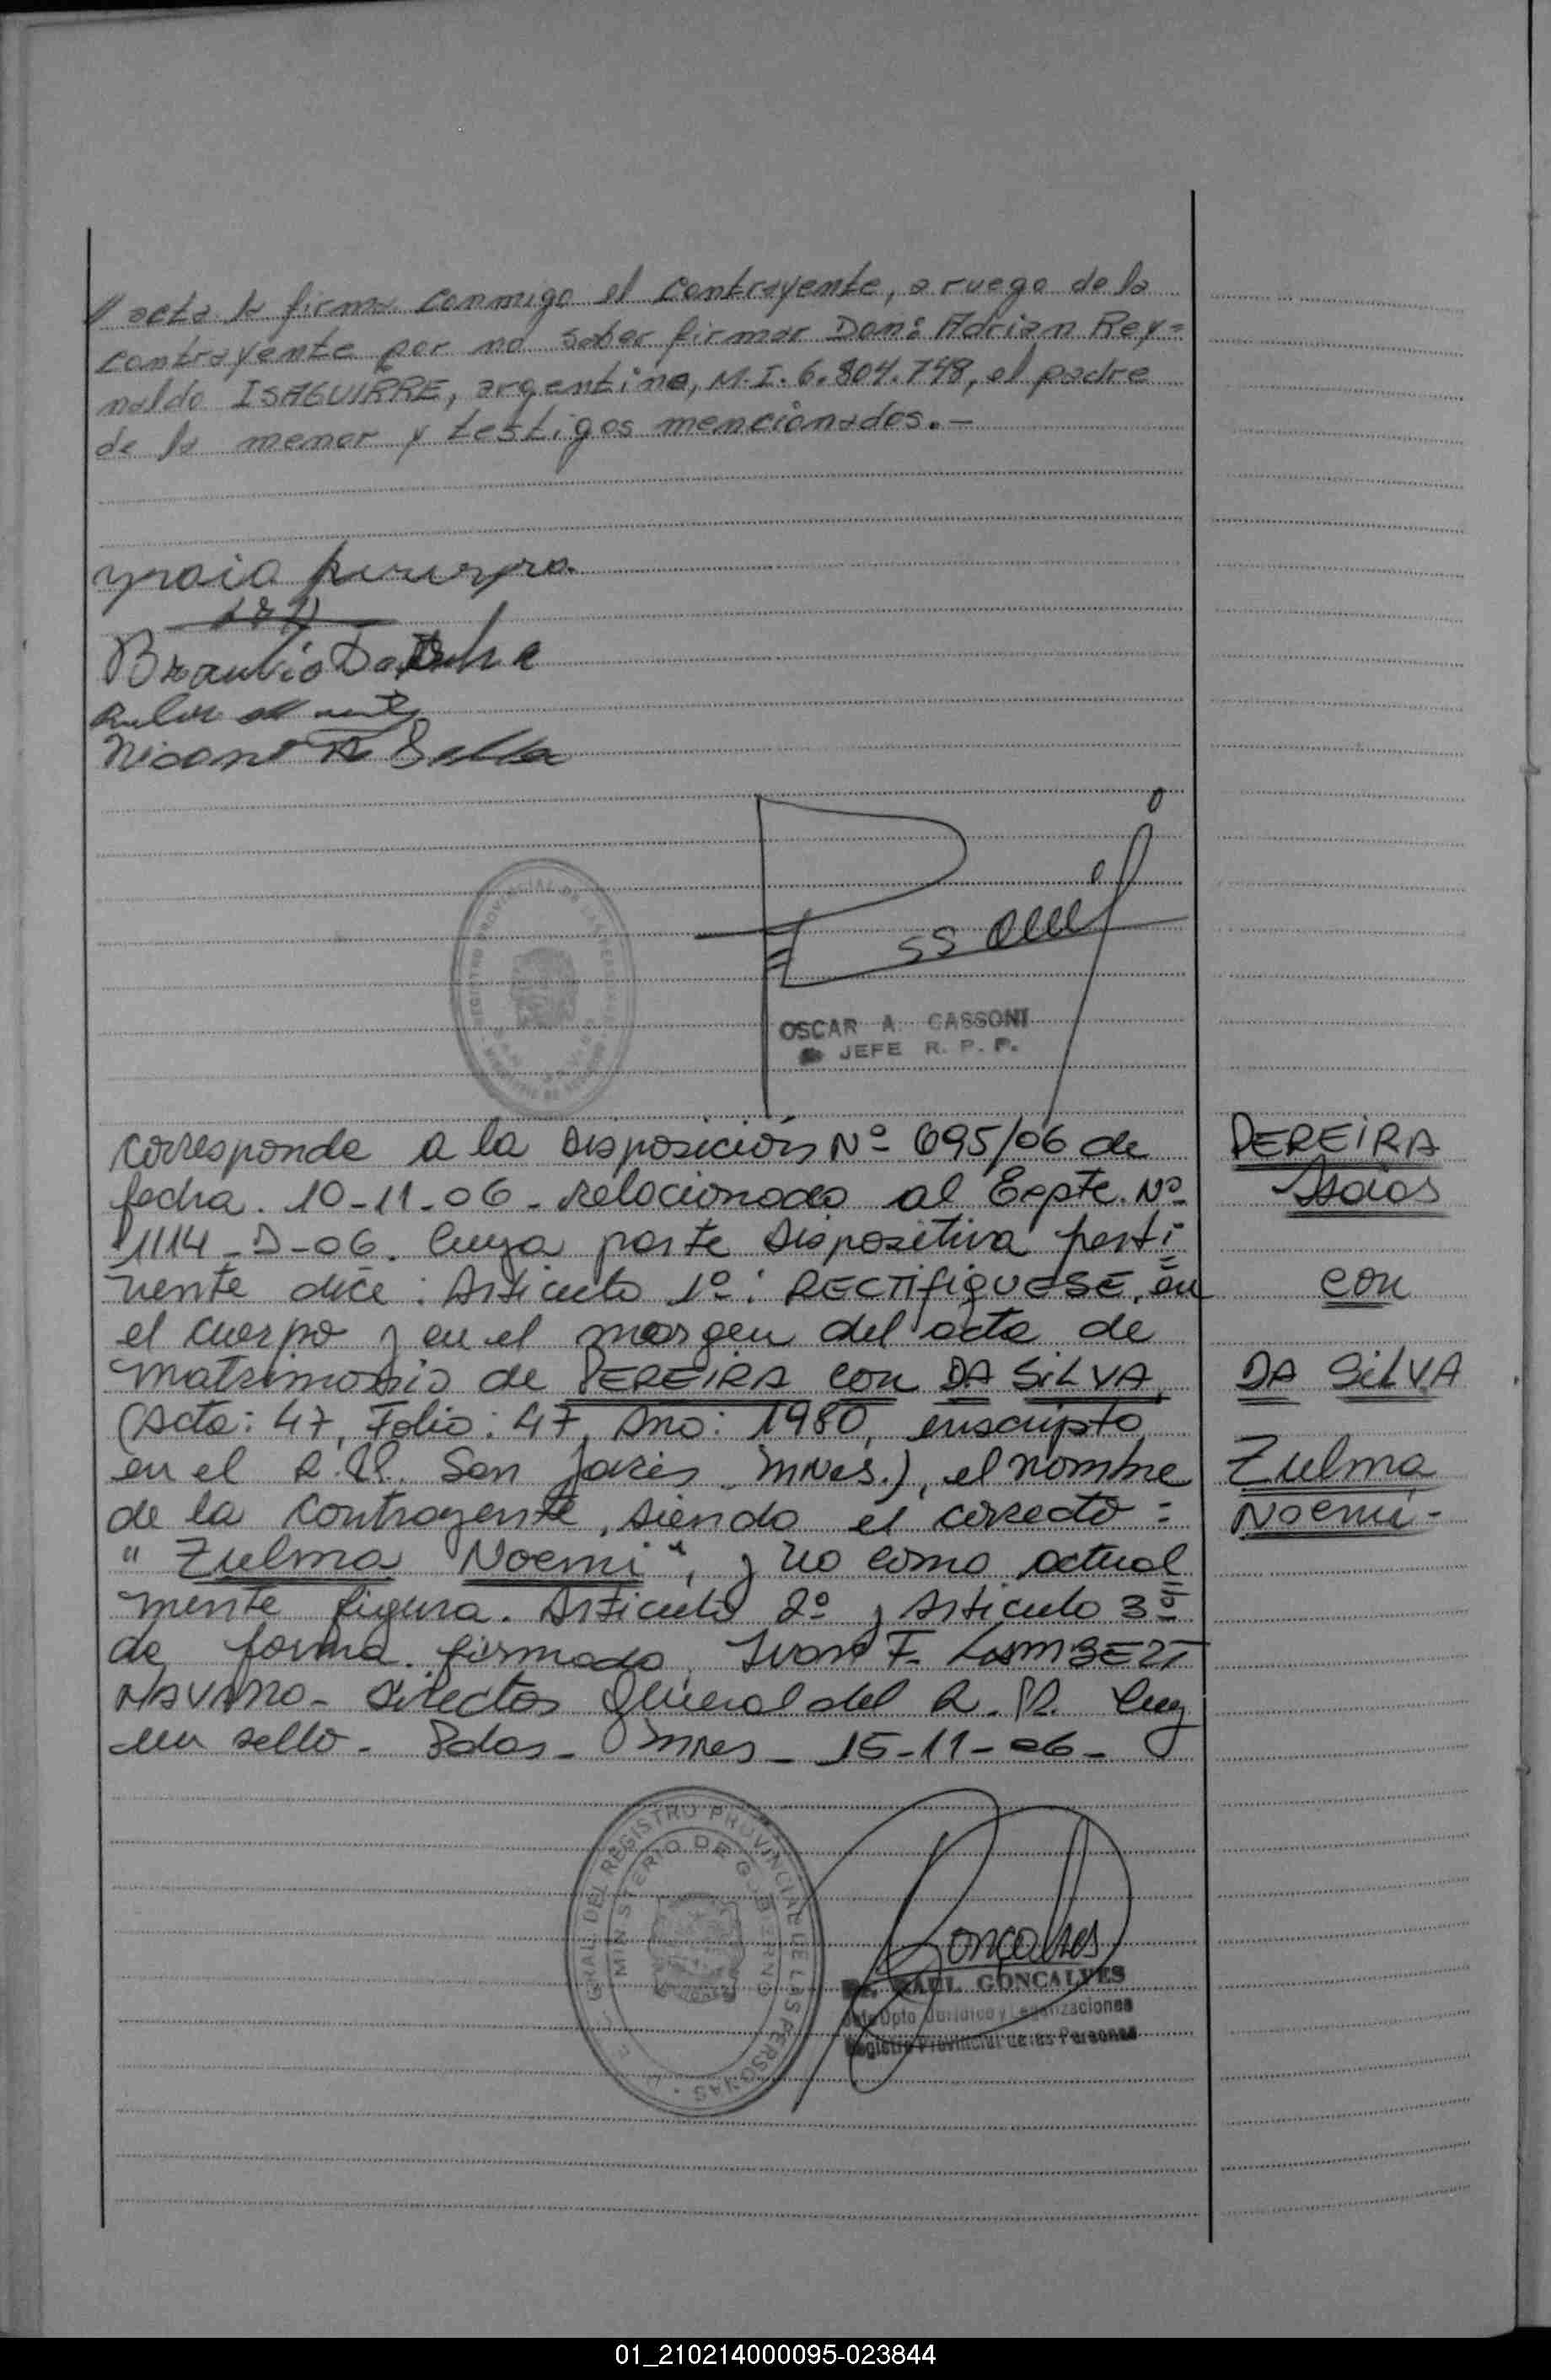 // acta la firma conmigo el contrayente, a ruego de la
contrayente por no saber firmar Don: Adrian Rey=
naldo ISAGUIRRE, argentino, M.I. 6.804.748, el padre
de la menor y testigos mencionados.-
Braulio Da
OSCAR A. CASSONI
JEFE R. P. P.
Corresponde a la Disposición Nº 695/06 de
fecha. 10-11-06 - relacionado al Expte. Nº
1114-D-06. Cuya parte dispositiva perti=
nente dice: Articulo 1º: RECTIFIQUESE, en
el cuerpo y en el margen del acta de
matrimonio de PEREIRA con DA SILVA,
(Acta: 47, Folio: 47, Ano: 1980, inscripto
en el R.P. San Javier Mnes.), el nombre
de la contrayente, siendo el correcto =
"Zulma Noemi", y no como actual
mente figura. Articulo 2º y Articulo 3º
de forma. firmado, Ivan F. LAMBERT
NAVARRO - Director General del R.P. Hay
un sello - Pdas - Mnes - 15-11-06 -
PEREIRA
Isaias
con
DA SILVA
Zulma
Noemi -
GRAL. DEL REGISTRO PROVINCIAL DE LAS PERSONAS
MINISTERIO DE GOBIERNO
MISIONES
Goncalves
Dr. RAUL GONCALVES
Jefe Dpto. Jurídico y Legalizaciones
Registro Provincial de las Personas
01_210214000095-023844